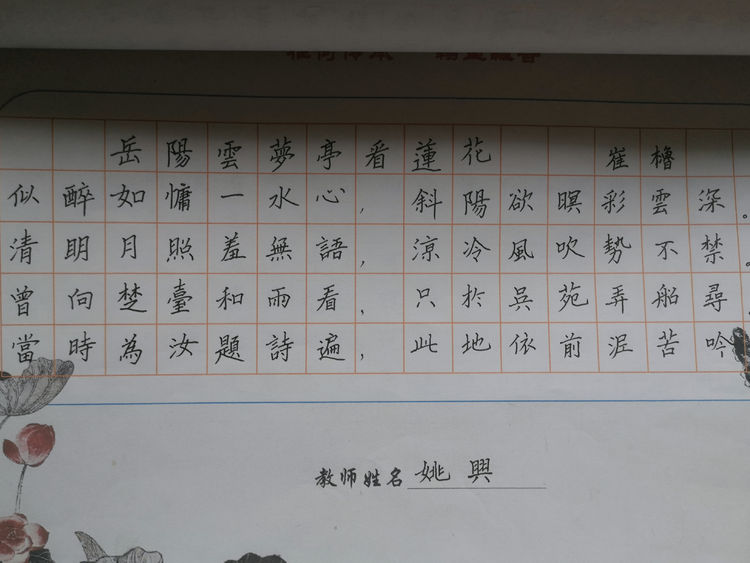 岳陽雲夢亭看蓮花 崔櫓
似醉如慵一水心，斜陽欲暝彩雲深。
清明月照羞無語，涼冷風吹勢不禁。
曾向楚臺和雨看，只於吳苑弄船尋
當時為汝題詩遍，此地依前泥苦吟
教师姓名 姚興